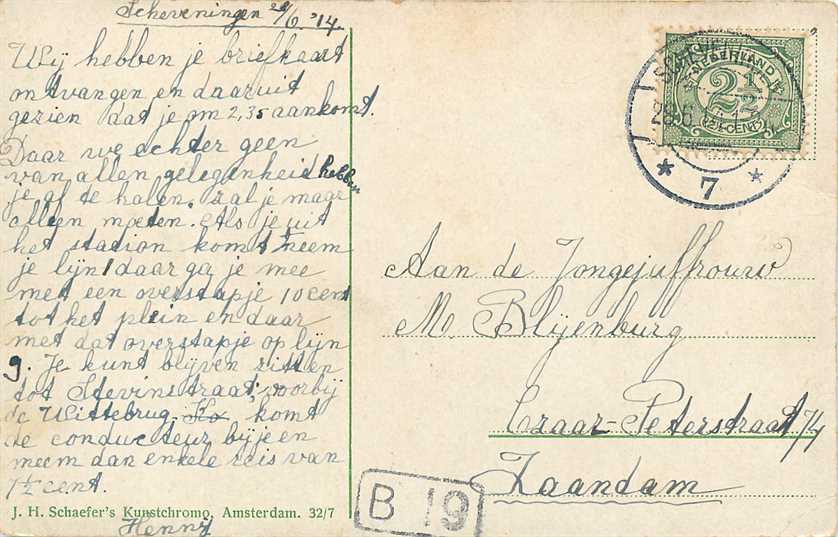 Scheveningen 28/6 '14
Wij hebben je briefkaart
ontvangen en daaruit
gezien dat je om 2,35 aankomt.
Daar we echter geen
van allen gelegenheid hebben
je af te halen, zal je maar
alleen moeten. Als je uit
het station komt neem
je lijn 1 daar ga je mee
met een overstapje 10 cent
tot het plein en daar
met dat overstapje op lijn
9. Je kunt blijven zitten
tot Stevinstraat, voorbij
de Wittebrug. komt
de conducteur bij je en
neem dan enkele reis van
7½ cent.
J. H. Schaefer's Kunstchromo, Amsterdam. 32/7
Henny
NEDERLAND
2½
CENT
28.6
* 7 *
Aan de Jongejuffrouw
M. Blijenburg
Czaar-Peterstraat
Zaandam
B 19